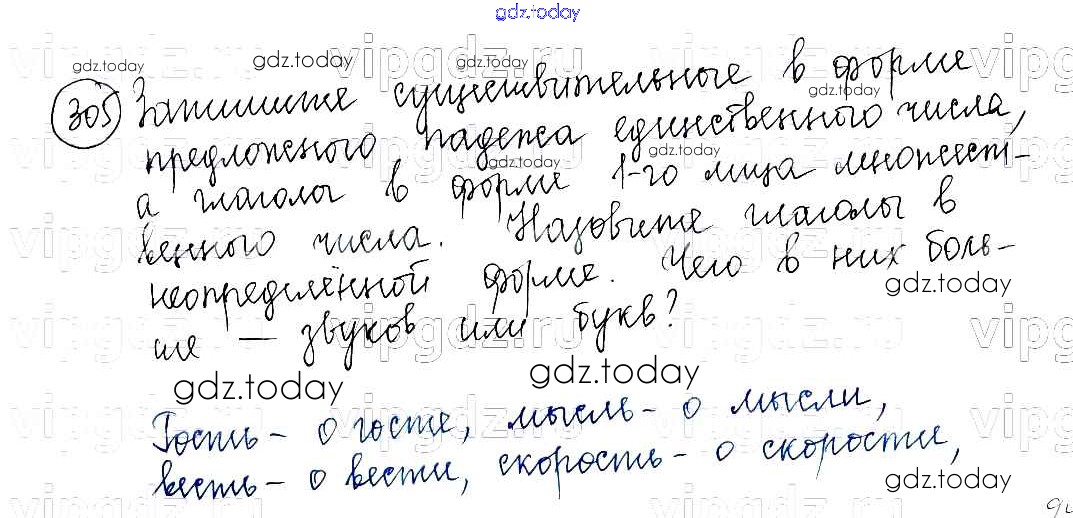 gdz.today
305 Запишите существительные в форме
предложного падежа единственного числа,
а глаголы в форме 1-го лица множест-
венного числа. Назовите глаголы в
неопределённой форме. Чего в них боль-
ше — звуков или букв?
gdz.today gdz.today
Гость - о госте, мысль - о мысли,
весть - о вести, скорость - о скорости,